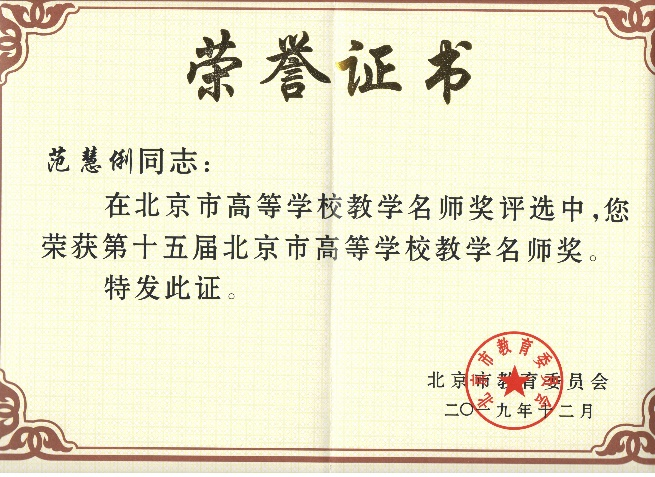 荣誉证书
范慧俐同志：
在北京市高等学校教学名师奖评选中，您
荣获第十五届北京市高等学校教学名师奖。
特发此证。
北京市教育委员会
二〇一九年十二月
北京市教育委员会